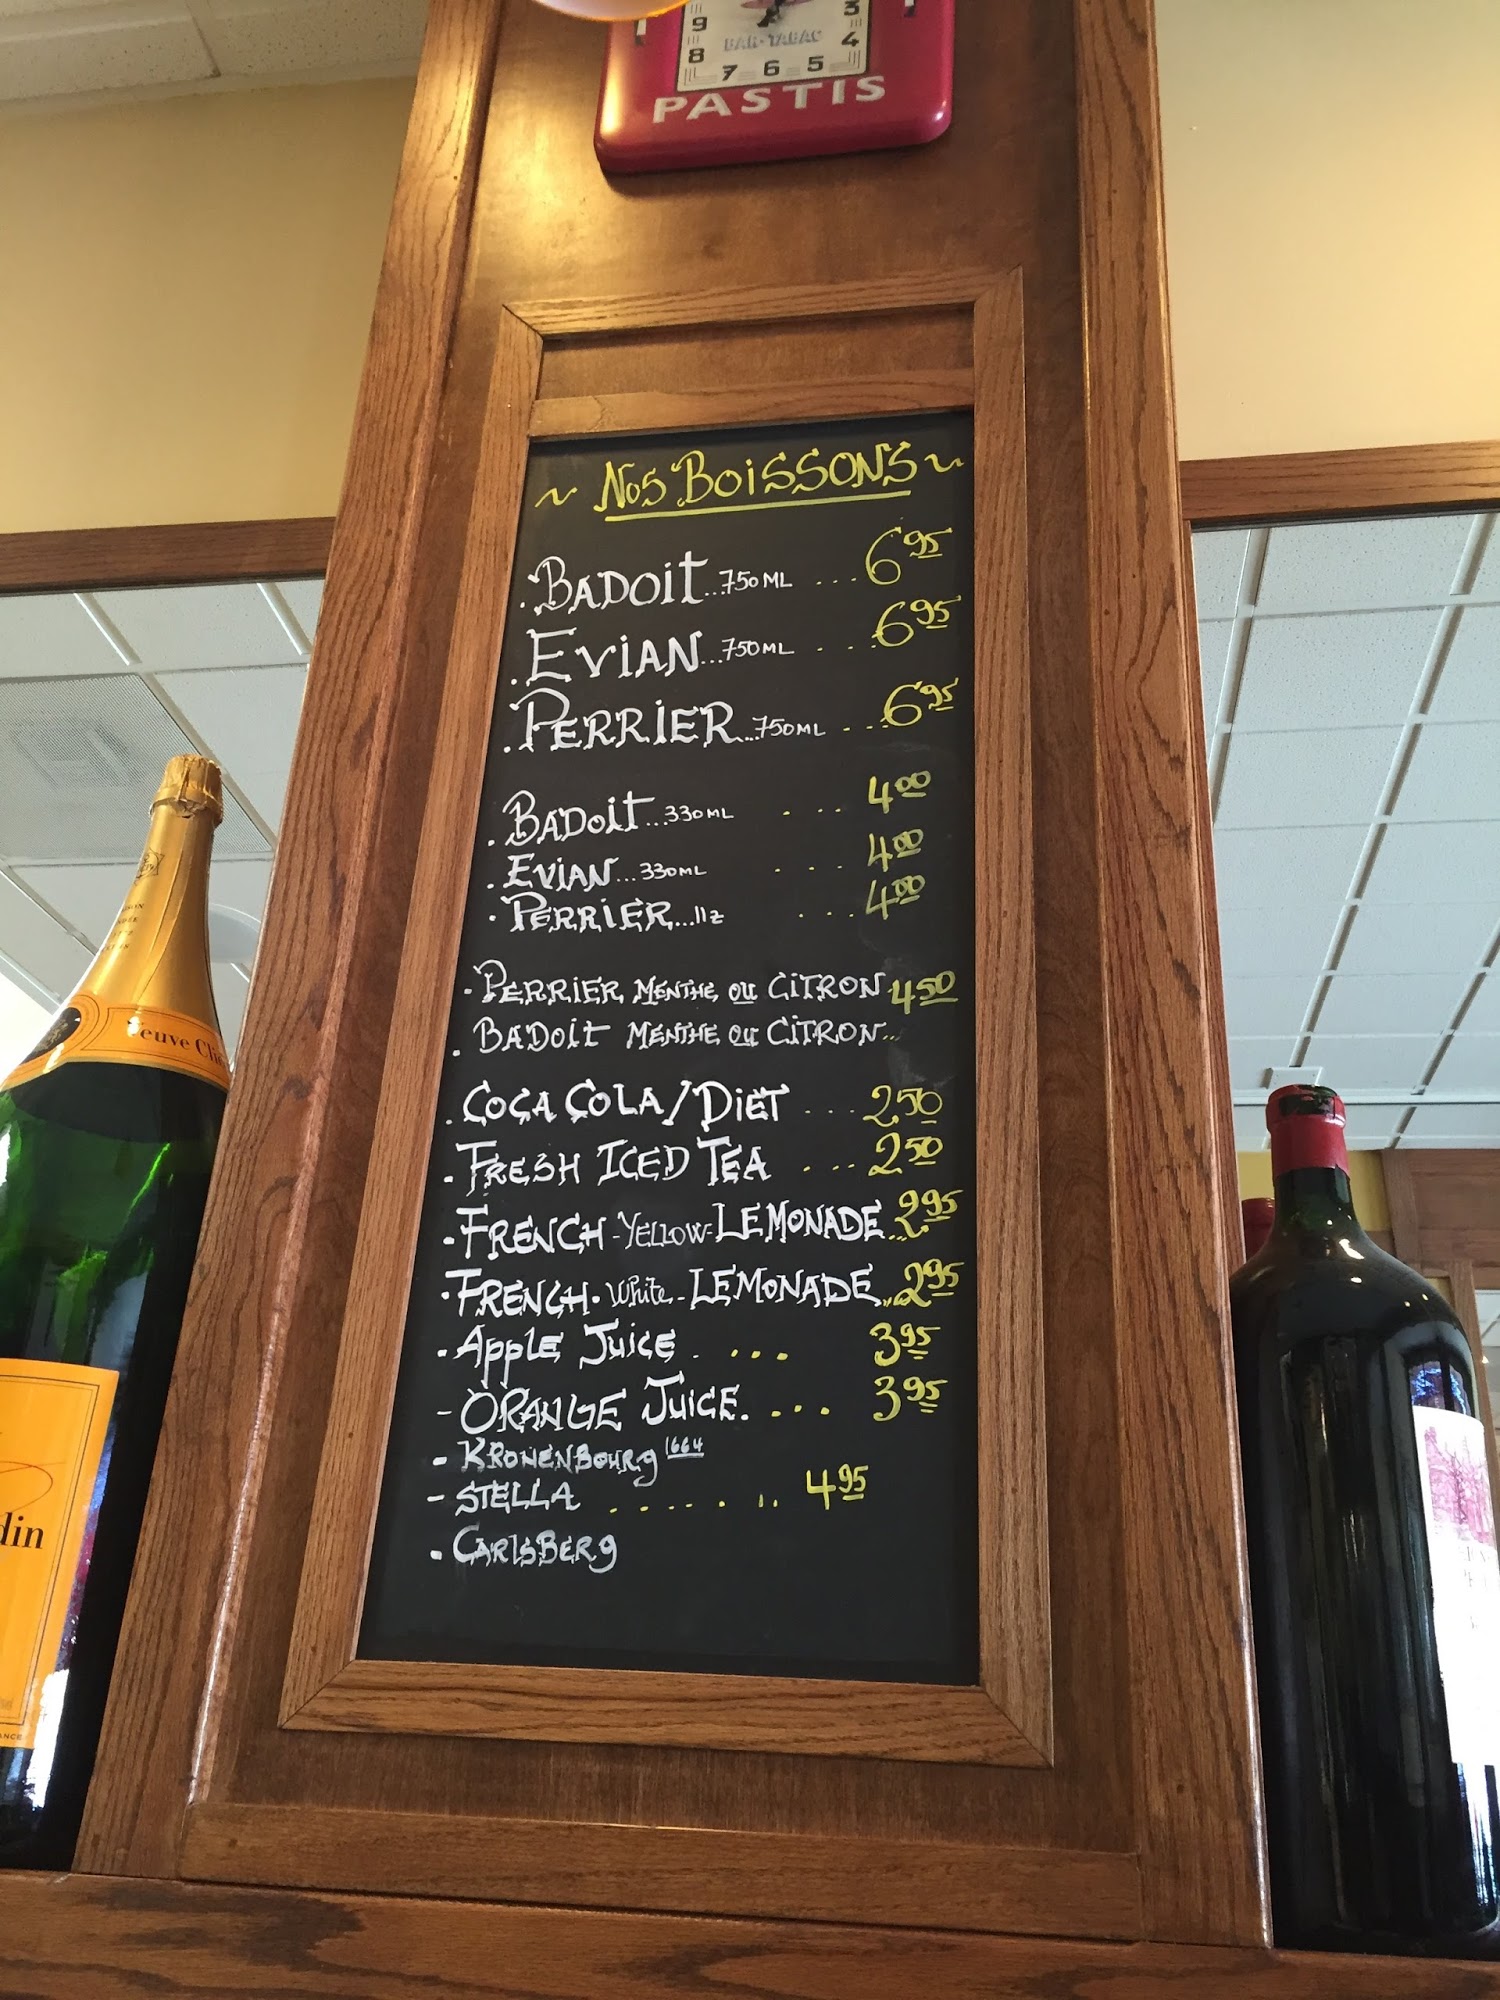 9 3
8 BAR-TABAC 4
7 6 5
PASTIS
~ Nos BOiSSONS ~
. BADOiT...750ML ... 6 95
. EViAN...750ML . . . 6 95
. PERRiER...750ML ... 6 95
. BADOiT...330ML . . . 4 00
. EViAN...330ML . . . 4 00
. PERRiER...11z . . . 4 00
. PERRiER MENTHE ou CiTRON. 4 50
. BADOiT MENTHE ou CiTRON...
. COCA COLA/DiET ... 2 50
. FRESH ICED TEA ... 2 50
. FRENCH-YELLOW-LEMONADE... 2 95
. FRENCH. White-LEMONADE... 2 95
. Apple Juice . ... 3 95
- ORANGE JuiCE. ... 3 95
- KRONENBOURg 1664
- STELLA ........ 4 95
. CARlSBERg
Veuve Cli
din